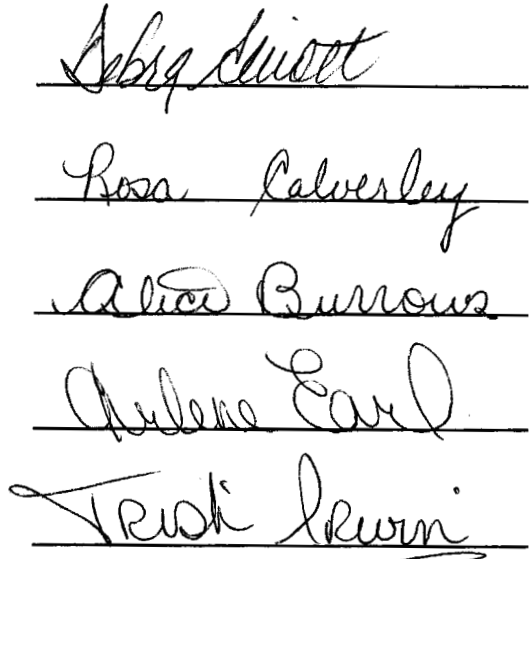 Debra
Rosa Calverley
Alice Burrows
Arlene Earl
Trish Irwin